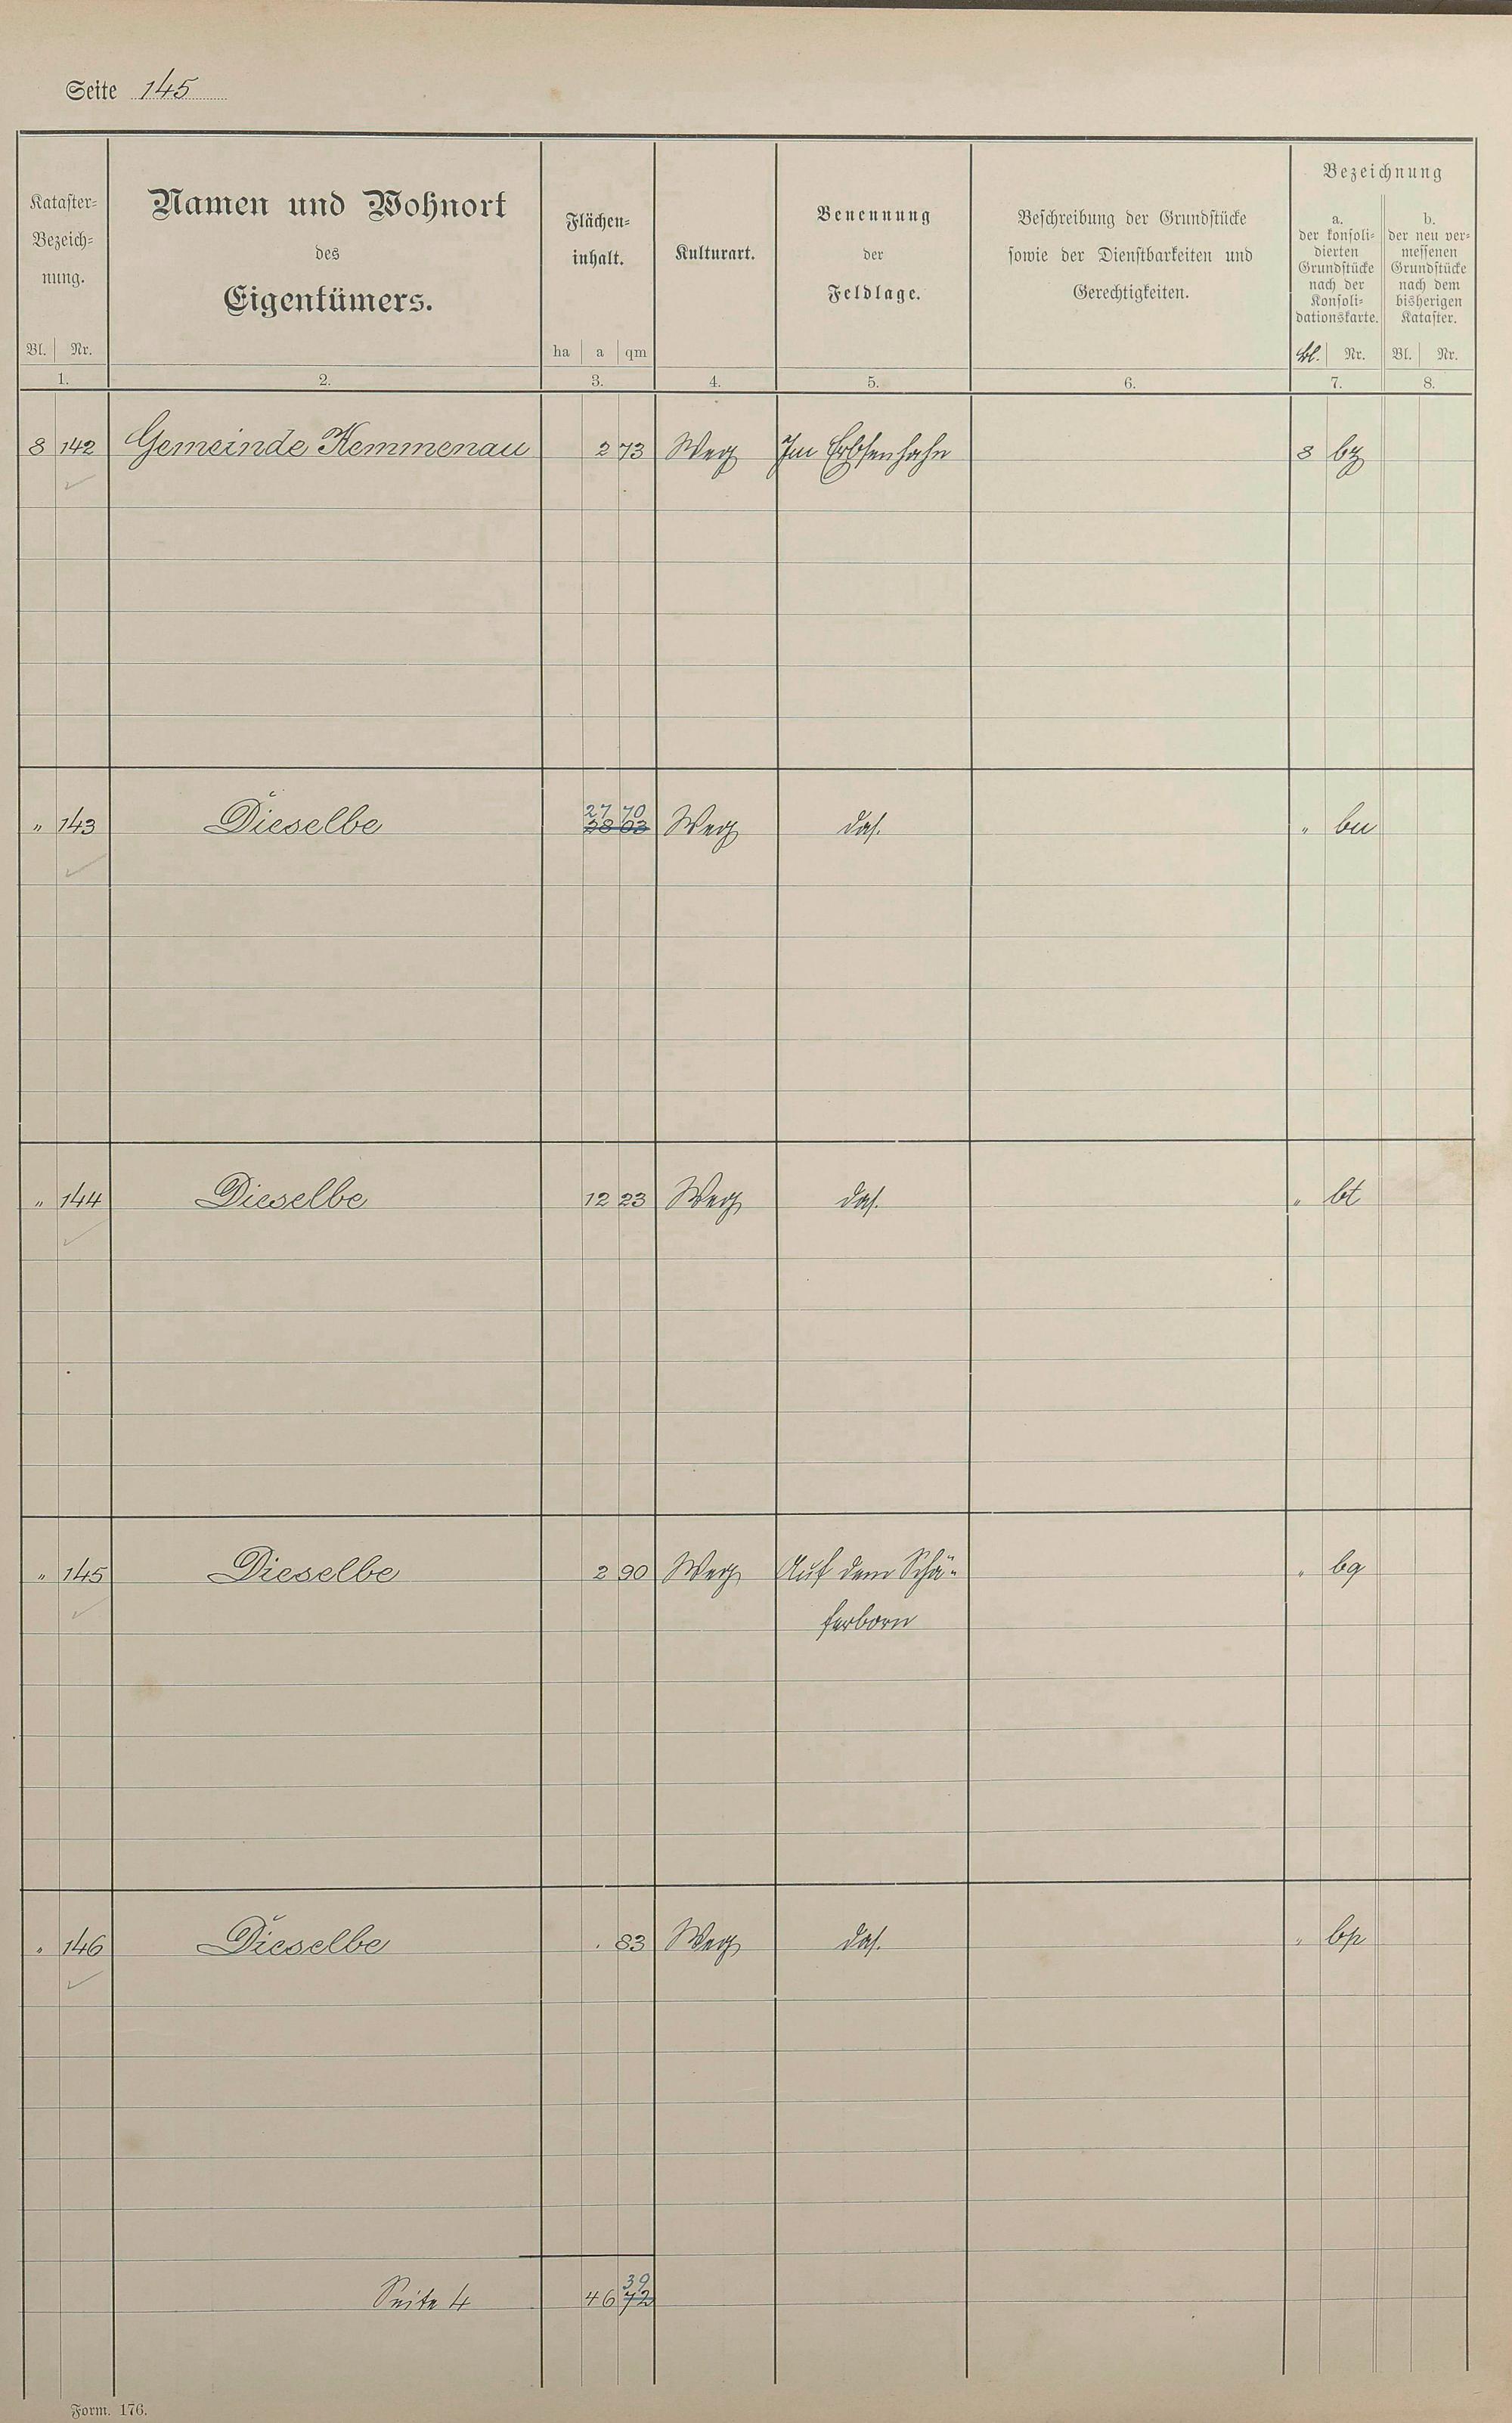 Seite 145
Kataster-
Bezeich-
nung.
Bl. Nr.
1.
Namen und Wohnort
des
Eigentümers.
2.
Flächen-
inhalt.
ha a qm
3.
Kulturart.
4.
Benennung
der
Feldlage.
5.
Beschreibung der Grundstücke
sowie der Dienstbarkeiten und
Gerechtigkeiten.
6.
Bezeichnung
a.
der konsoli-
dierten
Grundstücke
nach der
Konsoli-
dationskarte.
Bl. Nr.
7.
b.
der neu ver-
messenen
Grundstücke
nach dem
bisherigen
Kataster.
Bl. Nr.
8.
8 142 Gemeinde Kemmenau 2 73 Weg Im Erbsenhahn 8 bz
27 70
" 143 Dieselbe 28 03 Weg das. " bu
" 144 Dieselbe 12 23 Weg das. " bt
" 145 Dieselbe 2 90 Weg Auf dem Schä-
ferborn
" bq
" 146 Dieselbe . 83 Weg das. " bp
39
Seite 4 46 72
Form. 176.